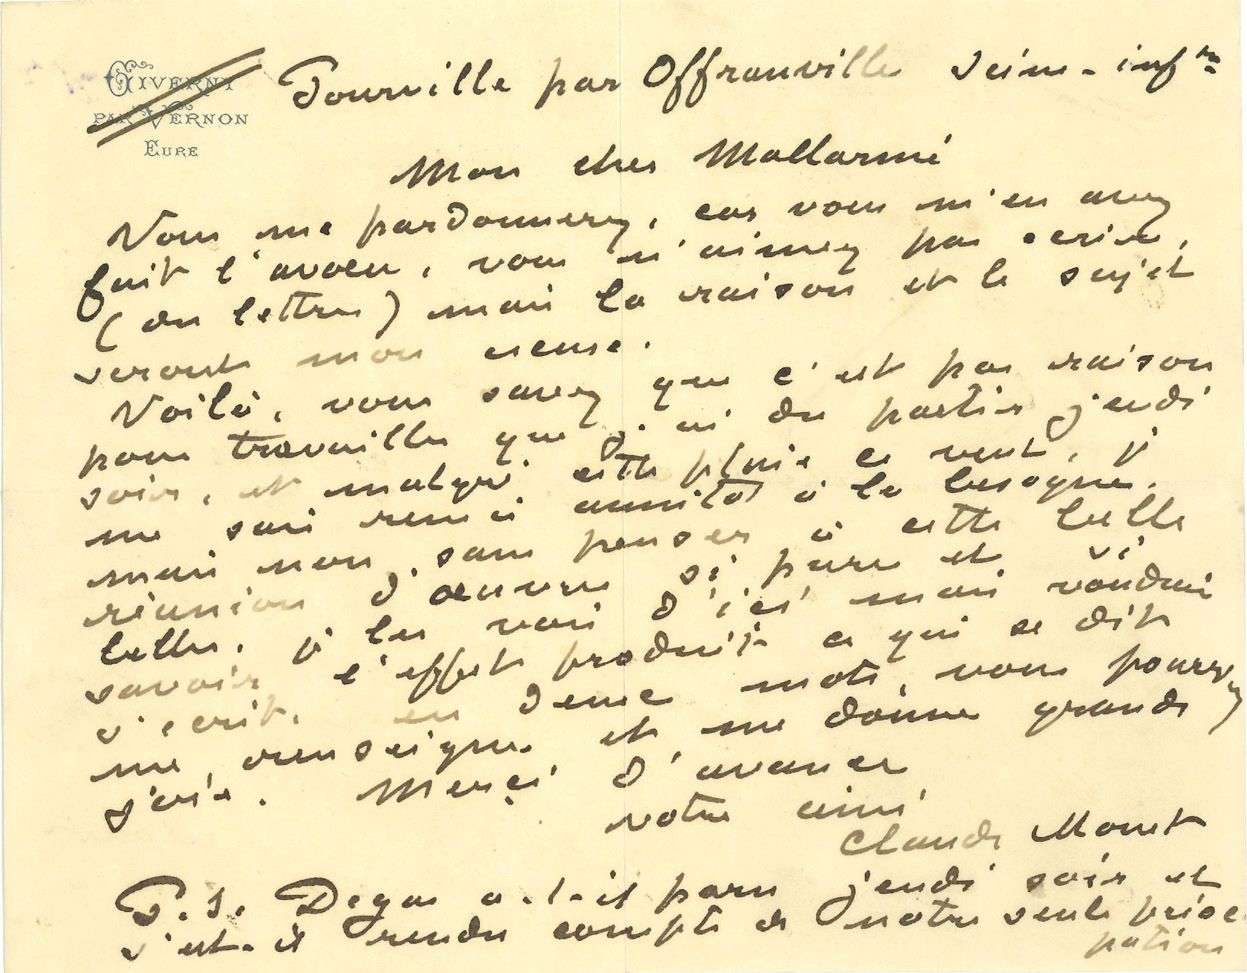 GIVERNY
PAR VERNON
EURE
Pourville par Offranville Seine-infre
Mon cher Mallarmé
Vous me pardonnerez, car vous m'en avez
fait l'aveu, vous n'aimez pas ecrire,
(des lettres) mais la raison et le sujet
seront mon excuse.
Voilà, vous savez que c'est par raison
pour travailler que j'ai du partir jeudi
soir, et malgré cette pluie ce vent, je
me suis remis aussitôt à la besogne.
mais non sans penser à cette belle
réunion d'œuvres si pures et si
belles. je les vois d'ici mais voudrais
savoir l'effet produit ce qui se dit
s'ecrit. en deux mots, vous pourrez
me renseigner et me donner grande
joie. Merci d'avance
votre ami
Claude Monet
P.S. Degas a-t-il paru jeudi soir et
s'est-il rendu compte de notre seule préoc
pation